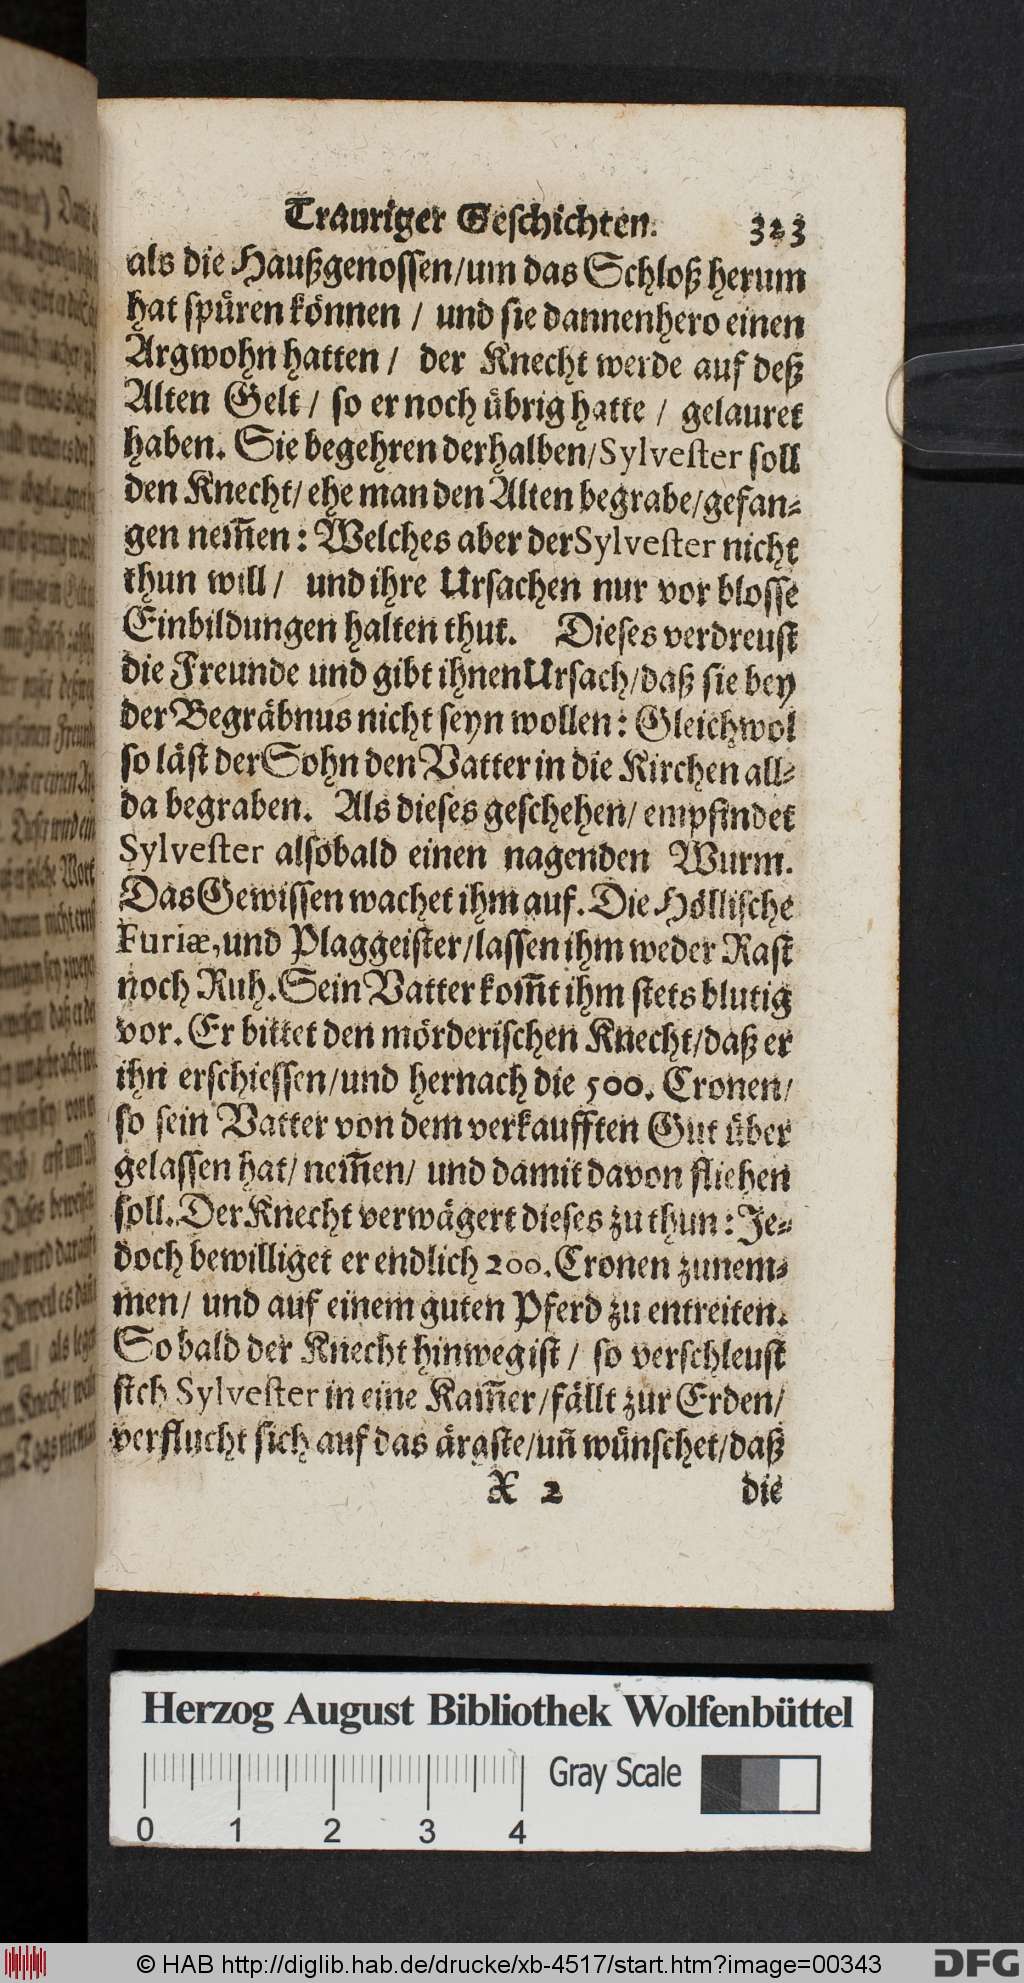 Trauriger Geschichten. 323
als die Haußgenossen/um das Schloß herum
hat spůren können / und sie dannenhero einen
Argwohn hatten / der Knecht werde auf deß
Alten Gelt / so er noch ůbrig hatte / gelauret
haben. Sie begehren derhalben/Sylvester soll
den Knecht/ ehe man den Alten begrabe/gefan-
gen nem̃en: Welches aber der Sylvester nicht
thun will / und ihre Ursachen nur vor blosse
Einbildungen halten thut. Dieses verdreust
die Freunde und gibt ihnen Ursach/daß sie bey
der Begräbnus nicht seyn wollen: Gleichwol
so läst der Sohn den Vatter in die Kirchen all-
da begraben. Als dieses geschehen/ empfindet
Sylvester alsobald einen nagenden Wurm.
Das Gewissen wachet ihm auf. Die Höllische
Furiæ, und Plaggeister/lassen ihm weder Rast
noch Ruh. Sein Vatter kom̃t ihm stets blutig
vor. Er bittet den mörderischen Knecht/daß er
ihn erschiessen/und hernach die 500. Cronen/
so sein Vatter von dem verkaufften Gut ůber
gelassen hat/ nem̃en/ und damit davon fliehen
soll. Der Knecht verwägert dieses zu thun: Je-
doch bewilliget er endlich 200. Cronen zunem-
men/ und auf einem guten Pferd zu entreiten.
So bald der Knecht hinweg ist / so verschleust
sich Sylvester in eine Kam̃er/fällt zur Erden/
verflucht sich auf das ärgste/uñ wůnschet/daß
X 2 die
Herzog August Bibliothek Wolfenbüttel
Gray Scale
0 1 2 3 4
© HAB http://diglib.hab.de/drucke/xb-4517/start.htm?image=00343
DFG